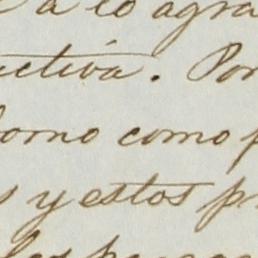 a lo agra
activa. Por
como como p
s y estos pr